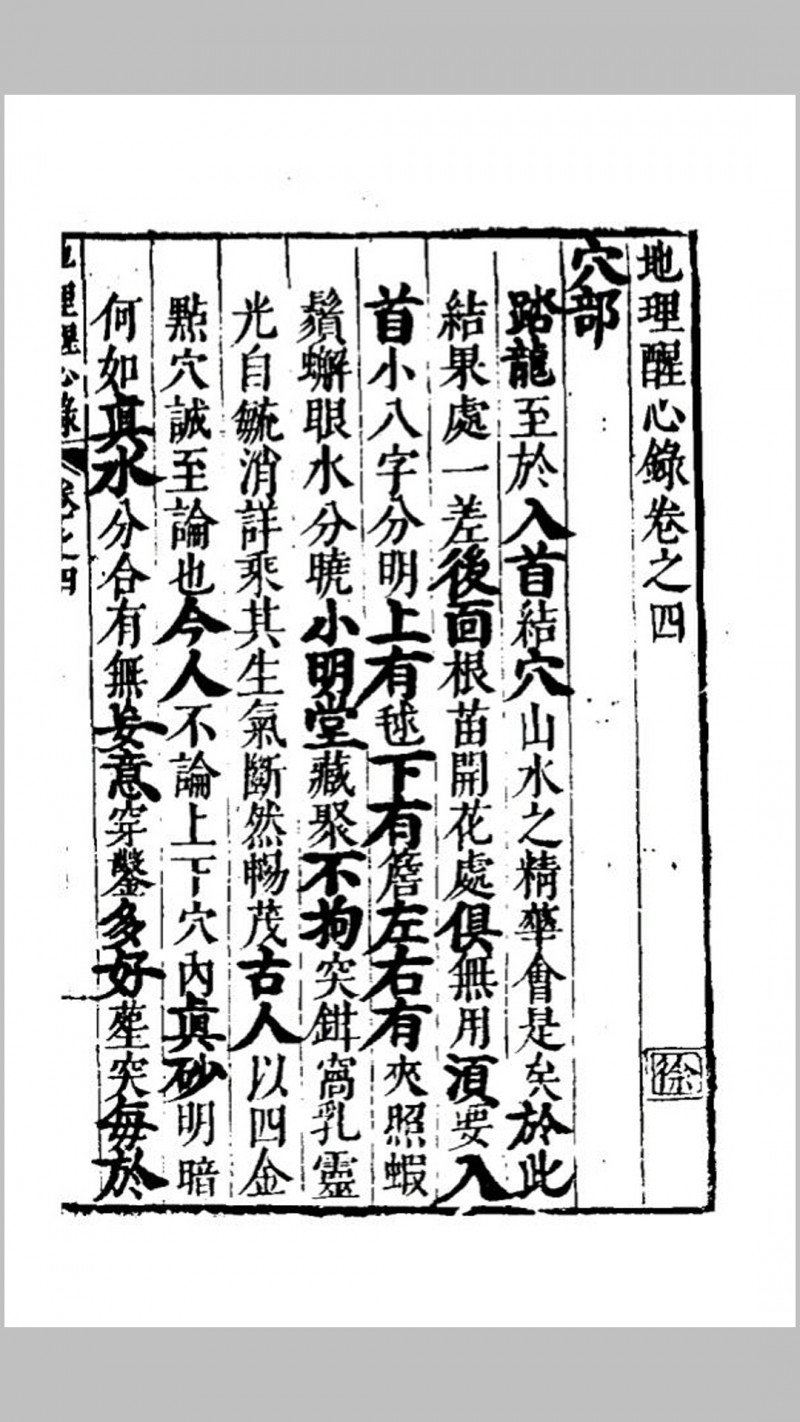 地理醒心錄卷之四
徐
穴部
踏龍至於入首結穴山水之精華會是矣於此
結果處一差後面根苗開花處俱無用須要入
首小八字分明上有毬下有簷左右有夾照蝦
鬚蠏眼水分曉小明堂藏聚不拘突鉗窩乳靈
光自毓消詳乘其生氣斷然暢茂古人以四金
點穴誠至論也今人不論上下穴內眞砂明暗
何如真水分合有無妄意穿鑿多好塟突每於
地理醒心錄 卷之四